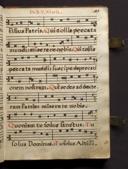 Filius Patris. Qui tollis peccata
mundi miserere nobis. Qui tollis
peccata mundi suscipe deprecati
onem nostram. Qui sedes ad dexte
ram Patris miserere nobis.
Quoniam tu solus sanctus. Tu
solus Dominus. Tu solus Altissi